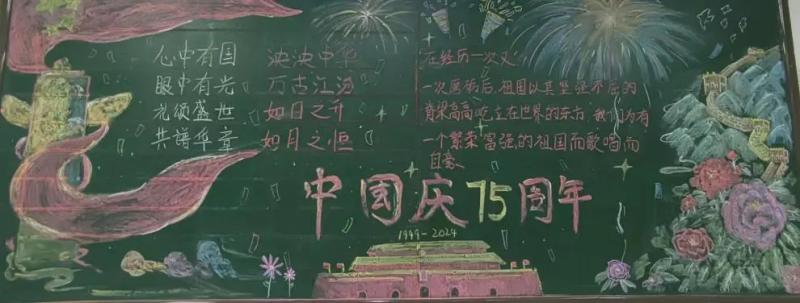 心中有国
眼中有光
礼颂盛世
共谱华章
泱泱中华
万古江河
如日之升
如月之恒
在经历一次又
一次磨砺后,祖国以其坚强不屈的
脊梁高高屹立在世界的东方,我们为有
一个繁荣富强的祖国而歌唱而
自豪
中国庆75周年
1949-2024